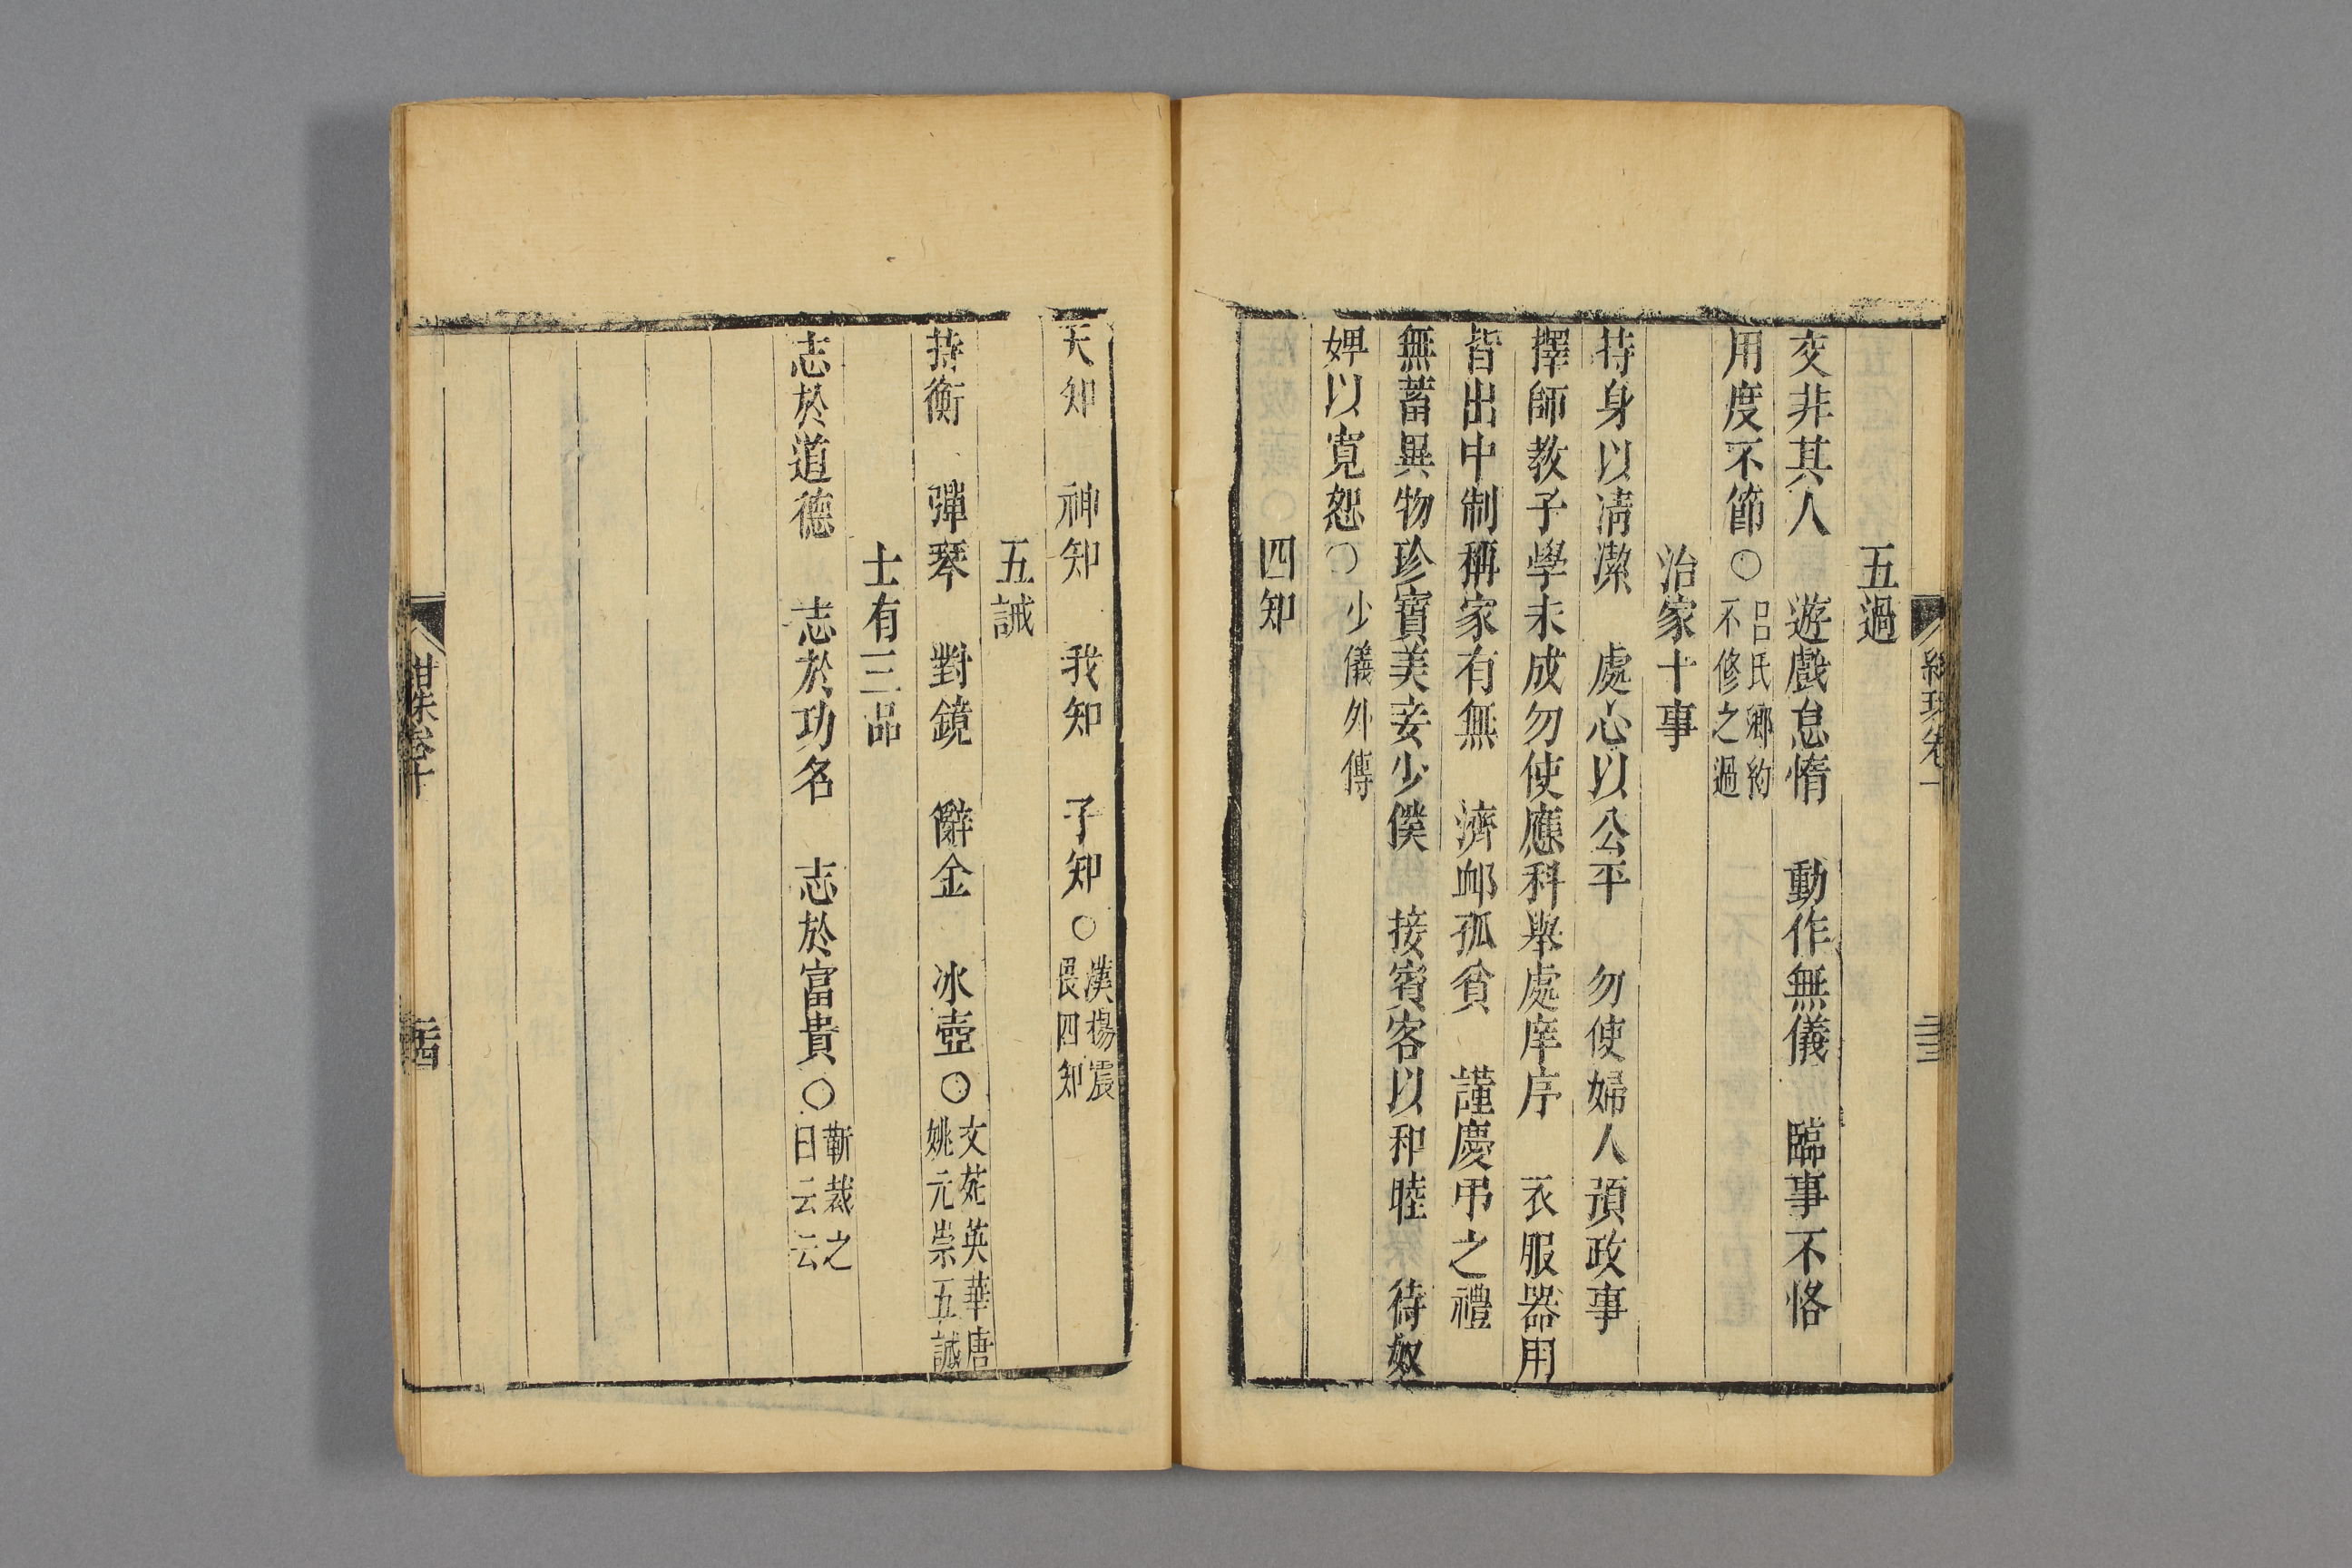 五過
交非其人　遊戲怠惰　動作無儀　臨事不恪
用度不節○呂氏鄉約不修之過
治家十事
持身以淸潔　處心以公平　勿使婦人預政事
擇師教子學未成勿使應科舉處庠序　衣服器用
皆出中制稱家有無　濟邺孤貧　謹慶弔之禮
無蓄異物珍寶美妾少僕　接賓客以和睦　待奴
婢以寛恕○少儀外傳
四知
天知　神知　我知　子知○漢楊震畏四知
五誡
持衡　彈琴　對鏡　辭金　冰壺○文苑英華唐姚元崇五誡
士有三品
志於道德　志於功名　志於富貴○靳裁之曰云云